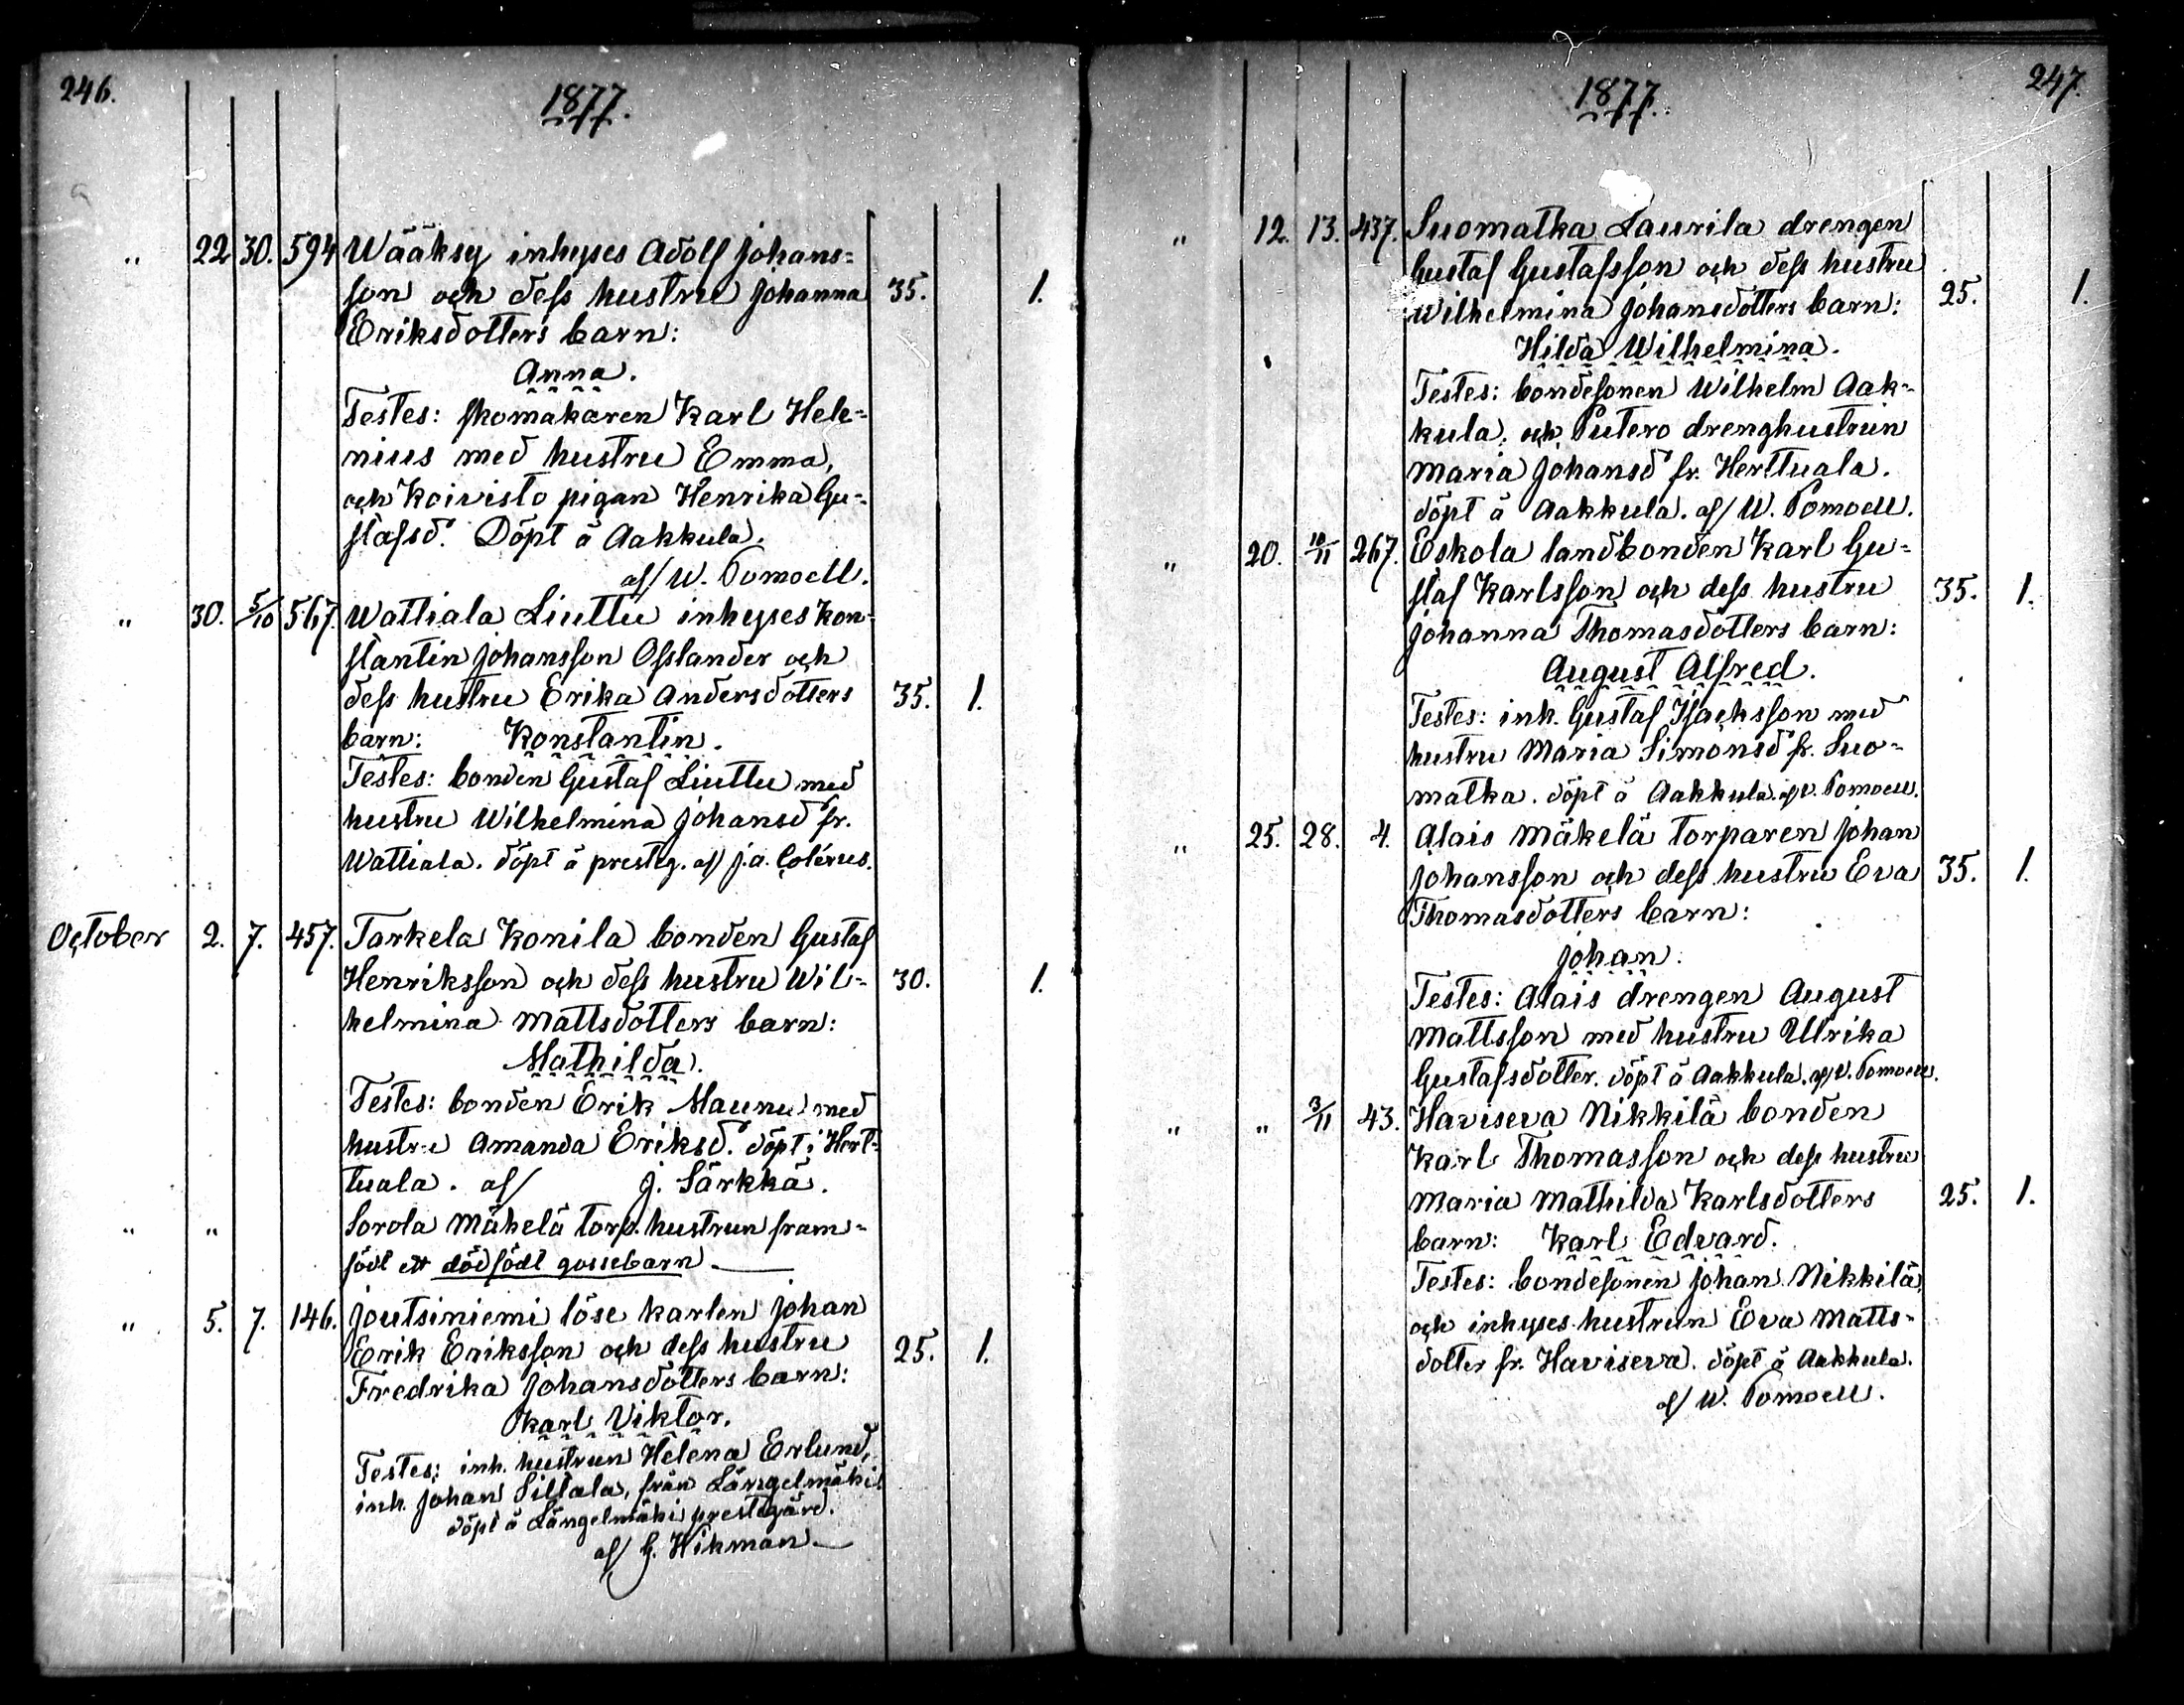 246.
1877.
" 22 30. 594 Wääksy inhyses Adolf Johans=
son och dess hustru Johanna 35. 1.
Eriksdotters barn:
Anna.
Testes: skomakaren Karl Hele=
nius med hustru Emma,
och Koivisto pigan Henrika Gu=
stafsd. Döpt å Aakkula.
af W. Pomoell.
" 30. 5/10 567. Wattiala Liuttu inhyses Kon=
stantin Johansson Osslander och
dess hustru Erika Andersdotters 35. 1.
barn: Konstantin.
Testes: bonden Gustaf Liuttu med
hustru Wilhelmina Johansd fr.
Wattiala. döpt å prestg. af J.A. Coterus.
October 2. 7. 457. Tarkela Konila bonden Gustaf
Henriksson och dess hustru Wil= 30. 1.
helmina Mattsdotters barn:
Mathilda.
Testes: bonden Erik Maunu med
hustru Amanda Eriksd. döpt i Hert=
tuala. af J. Särkkä.
" " Sorola Mäkelä torp. hustrun fram=
födt ett dödfödt gossebarn
" 5. 7. 146. Joutsiniemi löse karlen Johan
Erik Eriksson och dess hustru 25. 1.
Fredrika Johansdotters barn:
Karl Viktor.
Testes: inh. hustrun Helena Erlund,
inh. Johan Siltala, från Längelmäki
döpt å Längelmäki prestgård.
af G. Wikman
247.
1877.
" 12. 13. 437. Suomatka Laurila drengen
Gustaf Gustafsson och dess hustru
Wilhelmina Johansdotters barn: 25. 1.
Hilda Wilhelmina.
Testes: bondesonen Wilhelm Aak=
kula, och Putero drenghustrun
Maria Johansd fr. Herttuala.
döpt å Aakkula. af W. Pomoell.
" 20. 10/11 267. Eskola landbonden Karl Gu=
staf Karlsson och dess hustru 35. 1.
Johanna Thomasdotters barn:
August Alfred.
Testes: inh. Gustaf Isacksson med
hustru Maria Simonsd fr. Suo=
matka. döpt å Aakkula. af W. Pomoell.
" 25. 28. 4. Alais Mäkelä torparen Johan
Johansson och dess hustru Eva 35. 1.
Thomasdotters barn:
Johan.
Testes: Alais drengen August
Mattsson med hustru Ulrika
Gustafsdotter. döpt å Aakkula. af W. Pomoell.
" " 3/11 43. Havisera Nikkilä bonden
Karl Thomasson och dess hustru
Maria Mathilda Karlsdotters 25. 1.
barn: Karl Edvard.
Testes: bondesonen Johan Nikkilä,
och inhyses hustrun Eva Matts=
dotter fr. Havisera. döpt å Aakkula.
af W. Pomoell.